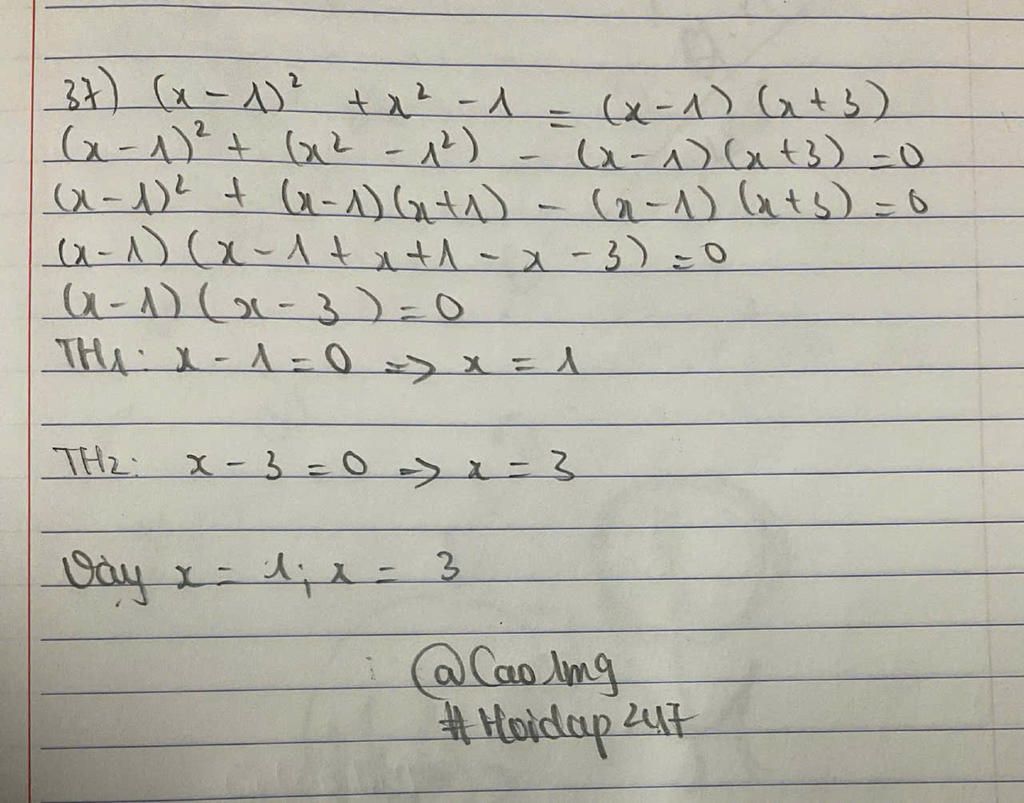 37) (x - 1)² + x² - 1 = (x - 1) (x + 3)
(x - 1)² + (x² - 1²) - (x - 1) (x + 3) = 0
(x - 1)² + (x - 1) (x + 1) - (x - 1) (x + 3) = 0
(x - 1) (x - 1 + x + 1 - x - 3) = 0
(x - 1) (x - 3) = 0
TH1: x - 1 = 0 => x = 1
TH2: x - 3 = 0 => x = 3
Vậy x = 1; x = 3
@Cao1mg
#Hoidap247